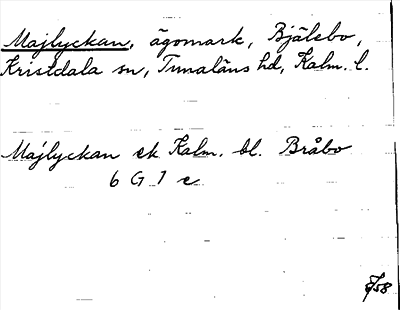 Majlyckan, ägomark, Bjälebo,
Kristdala sn, Tunaläns hd, Kalm. l.
Majlyckan ek Kalm. bl. Bråbo
6 G 1 c